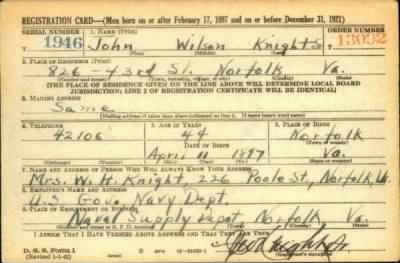 REGISTRATION CARD—(Men born on or after February 17, 1897 and on or before December 31, 1921)
SERIAL NUMBER 1. NAME (Print) ORDER NUMBER
1946 John Wilson Knight Jr 13092
(First) (Middle) (Last)
2. PLACE OF RESIDENCE (Print)
826 - 43rd St. Norfolk Va.
(Number and street) (Town, township, village, or city) (County) (State)
[THE PLACE OF RESIDENCE GIVEN ON THE LINE ABOVE WILL DETERMINE LOCAL BOARD
JURISDICTION; LINE 2 OF REGISTRATION CERTIFICATE WILL BE IDENTICAL]
3. MAILING ADDRESS
Same
[Mailing address if other than place indicated on line 2. If same insert word same]
4. TELEPHONE 5. AGE IN YEARS 6. PLACE OF BIRTH
42106 44 Norfolk
DATE OF BIRTH (Town or county)
April 11 1897 Va.
(Exchange) (Number) (Mo.) (Day) (Yr.) (State or country)
7. NAME AND ADDRESS OF PERSON WHO WILL ALWAYS KNOW YOUR ADDRESS
Mrs. W. H. Knight, 226 Poole St., Norfolk, Va.
8. EMPLOYER'S NAME AND ADDRESS
U.S. Gov. Navy Dept.
9. PLACE OF EMPLOYMENT OR BUSINESS
Naval Supply Depot, Norfolk Va.
(Number and street or R. F. D. number) (Town) (County) (State)
I AFFIRM THAT I HAVE VERIFIED ABOVE ANSWERS AND THAT THEY ARE TRUE.
D. S. S. Form 1
(Revised 1-1-42) (over)
Knight Jr.